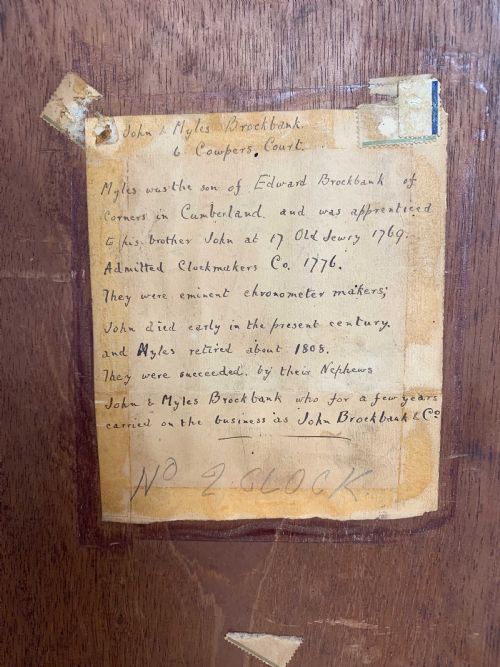 John & Myles Brockbank.
6 Cowpers Court.
Myles was the son of Edward Brockbank of
Corners in Cumberland. and was apprenticed
to his brother John at 17 Old Jewry 1769.
Admitted Clockmakers Co. 1776.
They were eminent chronometer makers;
John died early in the present century.
and Myles retired about 1808.
They were succeeded by their Nephews
John & Myles Brockbank who for a few years
carried on the business as John Brockbank & Co
No 2 CLOCK.